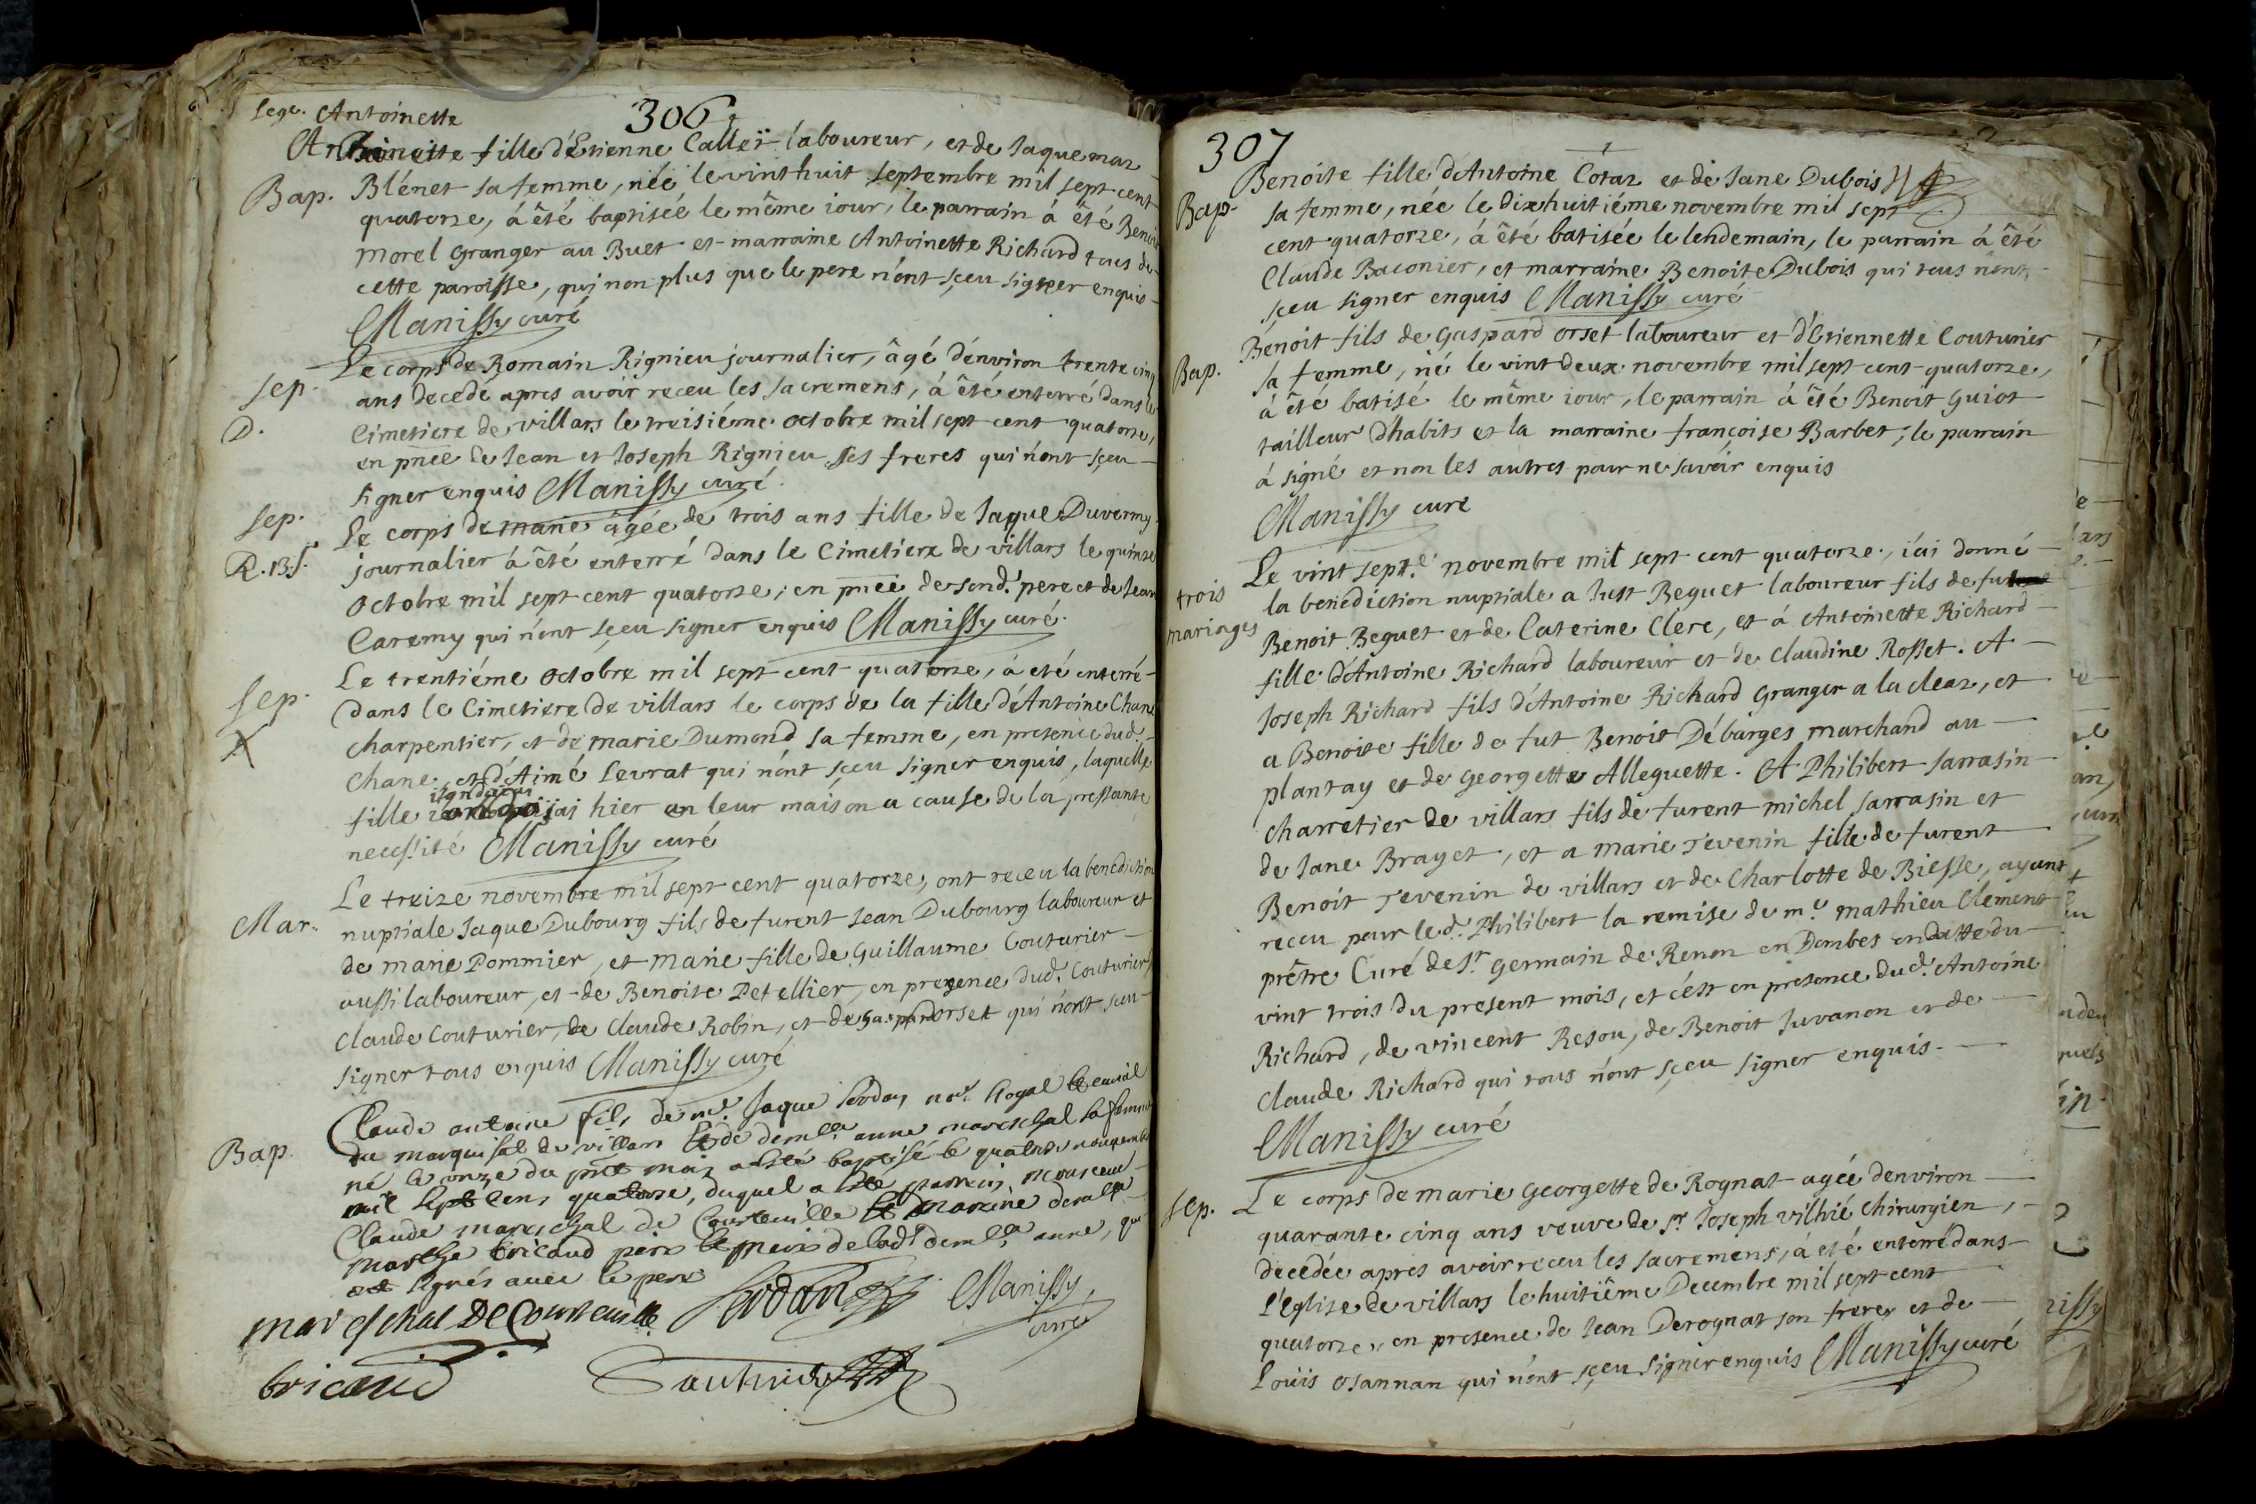 lege. Antoinette
306
Antoinette fille d'Etienne Calleÿ laboureur, et de Jaquemaz
Bap. Blénet sa femme, née le vint huit septembre mil sept cent
quatorze, á été baptisée le même iour, le parrain á été Benoit
Morel Granger au Buet et marraine Antoinette Richard tous de
cette paroisse, qui non plus que le pere n'ont sçeu signer enquis
Manissy curé
Le corps de Romain Rignieu journalier, âgé d'environ trente cinq
sep. ans decedé apres avoir receu les sacremens, á été enterré dans le
D. Cimetiere de villars le troisiéme octobre mil sept cent quatorze,
en pnce de Jean et Joseph Rignieu ses freres qui n'ont sçeu
signer enquis Manissy curé
sep. Le corps de marie âgée de trois ans fille de Jaque Duverny
R. 13 s. journalier á été enterré dans le Cimetiere de villars le quinze
octobre mil sept cent quatorze, en pnce de sond. pere et de Jean
Caremy qui n'ont sçeu signer enquis Manissy curé.
Le trentiéme octobre mil sept cent quatorze, á eté enterré
sep. dans le Cimetiere de villars le corps de la fille d'Antoine Chane
charpentier, et de marie Dumond sa femme, en presence dud.
Chane, et d'Aimé Sevrat qui n'ont sçeu signer enquis, laquelle
fille hier en leur maison a cause de la pressante
necessité Manissy curé
Le treize novembre mil sept cent quatorze, ont receu la benediction
Mar. nuptiale Jaque Dubourg fils de furent Jean Dubourg laboureur et
de marie Pommier, et marie fille de Guillaume Couturier
aussi laboureur, et de Benoite Petellier, en presence dud. Couturier,
Claude Couturier, de Claude Robin, et de gaspard orset qui n'ont sceu
signer tous enquis Manissy curé
Claude antoine fils de mr. Jaque Sordan nore. Royal
Bap. du marquisat de villars de demlle. anne mareschal sa femme
né le onze du pnt mois a esté baptisé le quatorze nouembre
mil sept cens quatorze, duquel a esté parrein
Claude mareschal de Courteuille marrine demlle.
Marthe bricaud de lad. demlle. anne, qui
ont signés auec le pere
mareschal De Courteuille Sordan Manissy
curé
bricaud
307
Benoite fille d'Antoine Cotaz et de Jane Dubois
Bap. sa femme, née le dixhuitiéme novembre mil sept
cent quatorze, á été batisée le lendemain, le parrain á été
Claude Baconier, et marraine Benoite Dubois qui tous n'ont
sçeu signer enquis Manissy curé
Benoit fils de gaspard orset laboureur et d'Etiennette Couturier
Bap. sa femme, né le vint deux novembre mil sept cent quatorze,
á été batisé le même iour, le parrain á été Benoit guiot
tailleur d'habits et la marraine françoise Barbet, le parrain
á signé et non les autres pour ne savoir enquis
Manissy curé
Le vint sept.e novembre mil sept cent quatorze, i'ai donné
trois la benediction nuptiale a Just Beguet laboureur fils de fut
mariages Benoit Beguet et de Caterine Clerc, et á Antoinette Richard
fille d'Antoine Richard laboureur et de claudine Rosset. A
Joseph Richard fils d'Antoine Richard Granger a la cleaz, et
a Benoite fille de fut Benoit Débarges marchand au
plantay et de georgette Alleguette. A Philibert Sarrasin
charretier de villars fils de furent michel sarrasin et
de Jane Brayet, et a marie Tevenin fille de furent
Benoit Tevenin de villars et de Charlotte de Biesse, ayant
receu pour led. Philibert la remise de m.e mathieu Clement
prêtre Curé de st. germain de Renon en Dombes en datte du
vint trois du present mois, et c'ést en presence dud. Antoine
Richard, de vincent Resou, de Benoit Juvanon et de
claude Richard qui tous n'ont sçeu signer enquis.
Manissy curé
Sep. Le corps de marie georgette de Rognat agée denviron
quarante cinq ans veuve de sr. Joseph vilhié chirurgien,
decedée apres avoir receu les sacremens, á eté enterré dans
l'Eglise de villars le huitiême Decembre mil sept cent
quatorze, en presence de Jean Derognat son frere, et de
Loüis osannan qui n'ont sçeu signer enquis Manissy curé